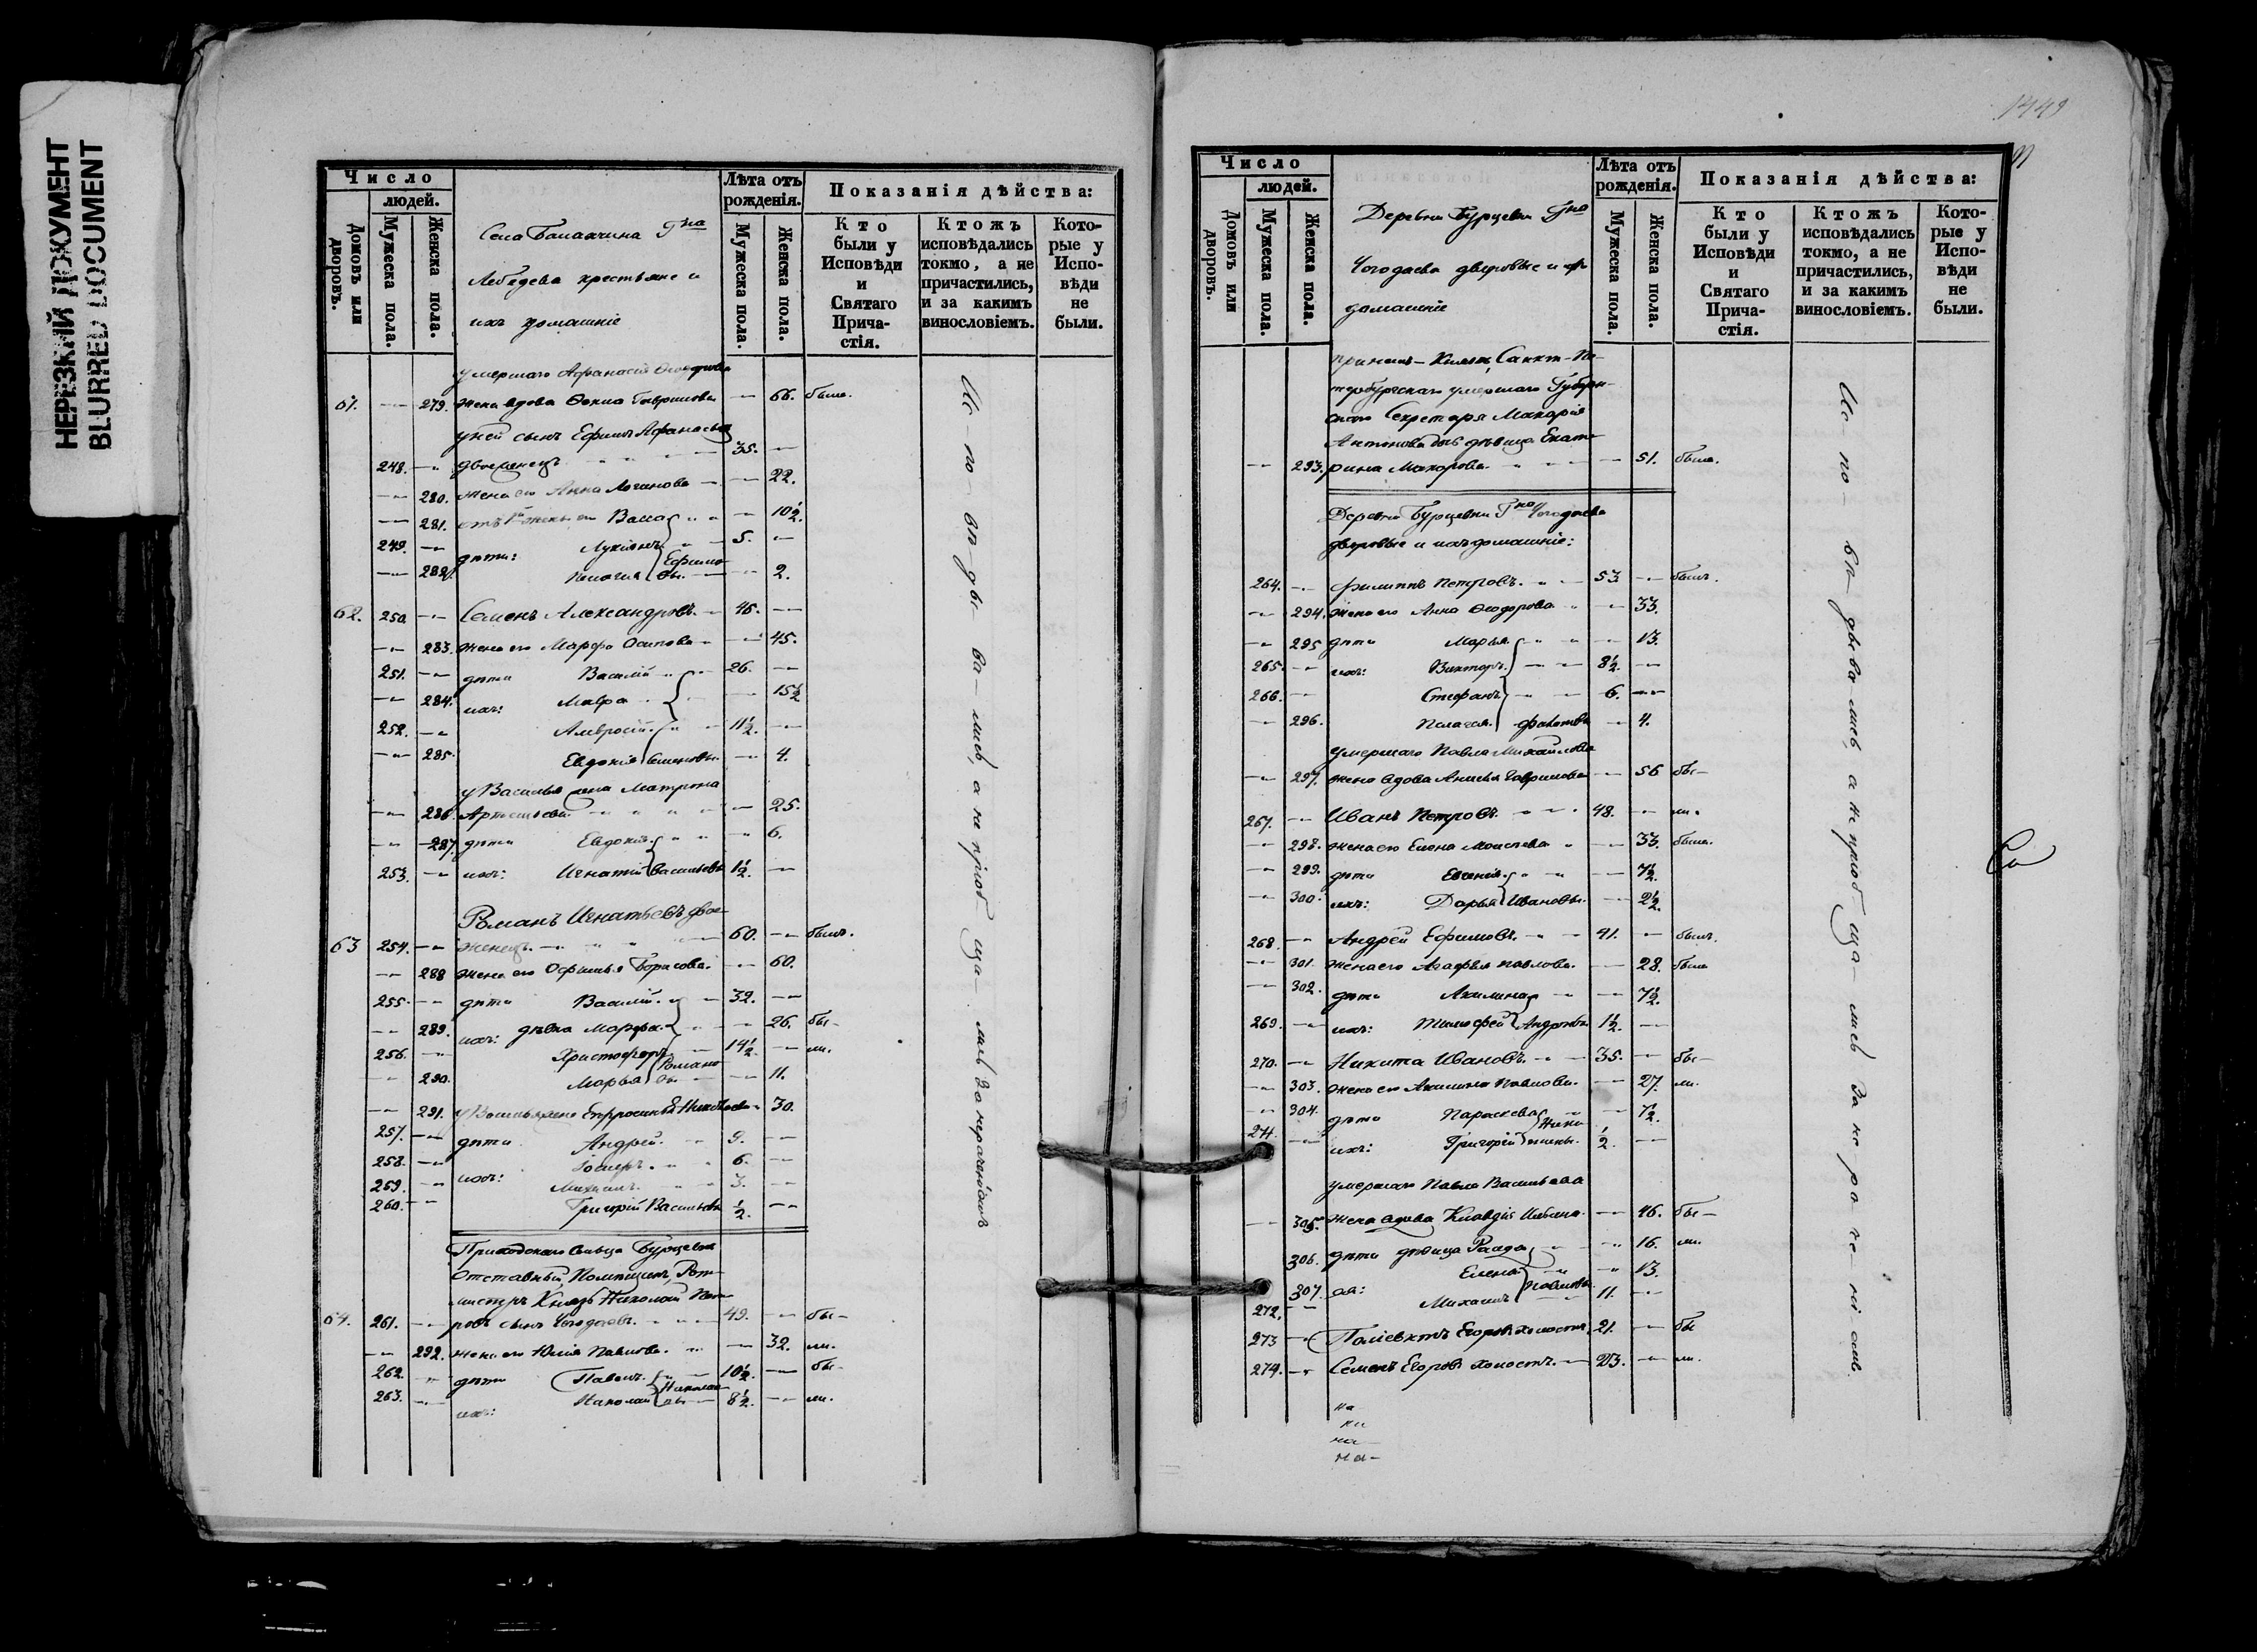 НЕРЕЗКИЙ ДОКУМЕНТ
BLURRED DOCUMENT
Число
людей.
Домовъ или дворовъ.
Мужеска пола.
Женска пола.
Села Г-на
Лебедева крестьяне и
ихъ домашніе
Лѣта отъ рожденія.
Мужеска пола.
Женска пола.
Показанія дѣйства:
Кто были у Исповѣди и Святаго Прича-стія.
Ктожъ исповѣдались токмо, а не причастились, и за какимъ винословіемъ.
Кото-рые у Испо-вѣди не были.
умершаго Афанасія Ѳеодрова
61. 279. жена вдова Ѳекла Гаврилова 66. была.
у ней сынъ Ефимъ Афанасьевъ
248. двоеженецъ 35.
280. жена его Анна 22.
281. отъ 1й жены его Васса 10½.
249. дѣти: Лукіянъ 5.
282. Пелагія Ефимовы 2.
62. 250. Семенъ Александровъ 46.
283. жена его Марфа Осипова 45.
251. дѣти Василій 26.
284. ихъ: Мавра 15½
252. Амвросій 11½.
285. Евдокія Семеновы 4.
у Василья жена Матрона
286. 25.
287. дѣти Евдокія 6.
253. ихъ: Игнатій Васильевы 1½.
Романъ Игнатьевъ двое-
63 254. женецъ 60. былъ.
288 жена его Борисова 60.
255. дѣти Василій 32.
289. ихъ: дѣвка Марфа 26. бы-
256. Христофоръ 14½. ли.
290. Марья Романовы 11.
291. у Василья жена Евфросинія 30.
257. дѣти Андрей 9.
258. ихъ: Іосифъ 6.
259. Михаилъ 3.
260. Григорій Васильевы ½.
Приходскаго сельца Бурцевки
Отставный Помѣщикъ, Рот-
мистръ Князь Николай Пет-
64. 261. ровъ сынъ Чегодаевъ 49. бы-
292. жена его Юлія Павлова 32. ли.
262. дѣти Павелъ 10½. бы-
263. ихъ: Николай Николаевы 8½. ли.
Ис- по- вѣ- ды- ва- лись, а не пріоб ща- лись за нераченіемъ
1449
Число
людей.
Домовъ или дворовъ.
Мужеска пола.
Женска пола.
Деревни Бурцевки Г-на
Чегодаева дворовые и их
домашніе
Лѣта отъ рожденія.
Мужеска пола.
Женска пола.
Показанія дѣйства:
Кто были у Исповѣди и Святаго Прича-стія.
Ктожъ исповѣдались токмо, а не причастились, и за какимъ винословіемъ.
Кото-рые у Испо-вѣди не были.
Санкт-Пе-
тербургскаго умершаго Губерн-
скаго Секретаря Макарія
Антонова дочь дѣвица Екате-
293. рина Макарова 51. была.
Деревни Бурцевки Г-на Чегодаева
дворовые и ихъ домашніе:
264. Филиппъ Петровъ. 53 былъ.
294. жена его Анна Ѳеодорова 33.
295 дѣти Марья 13.
265. ихъ: Викторъ 8½.
266. Стефанъ 6.
296. Пелагея 4.
умершаго Павла Михайлова
297. жена вдова Анисья Гаврилова 56 бы-
267. Иванъ Петровъ. 48. ли.
298. жена его Елена Моисеева 33. была.
299. дѣти Евгенія 7½.
300. ихъ: Дарья Ивановы. 2½.
268. Андрей Ефимовъ. 41. былъ.
301. жена его Агафья Павлова. 28. была
302. дѣти Акилина 7½.
269. ихъ: Тимофей Андреевы 1½.
270. Никита Ивановъ. 35. бы-
303. жена его Акилина Павлова. 27. ли.
304. дѣти Параскева 7½.
271. ихъ: Григорій Никитины. ½.
умершаго Павла Васильева
305. жена вдова Клавдія 46. бы-
306. дѣти дѣвица Раида 16. ли.
307. ея: Елена 13.
272. Михаилъ Павловы. 11.
273 Поліевктъ Егоровъ холостъ. 21. бы
274. Семенъ Егоровъ холостъ. 23. ли.
Ис- по- вѣ- ды ва- лись, а не пріоб ща- лись за не ра че- ні емъ.